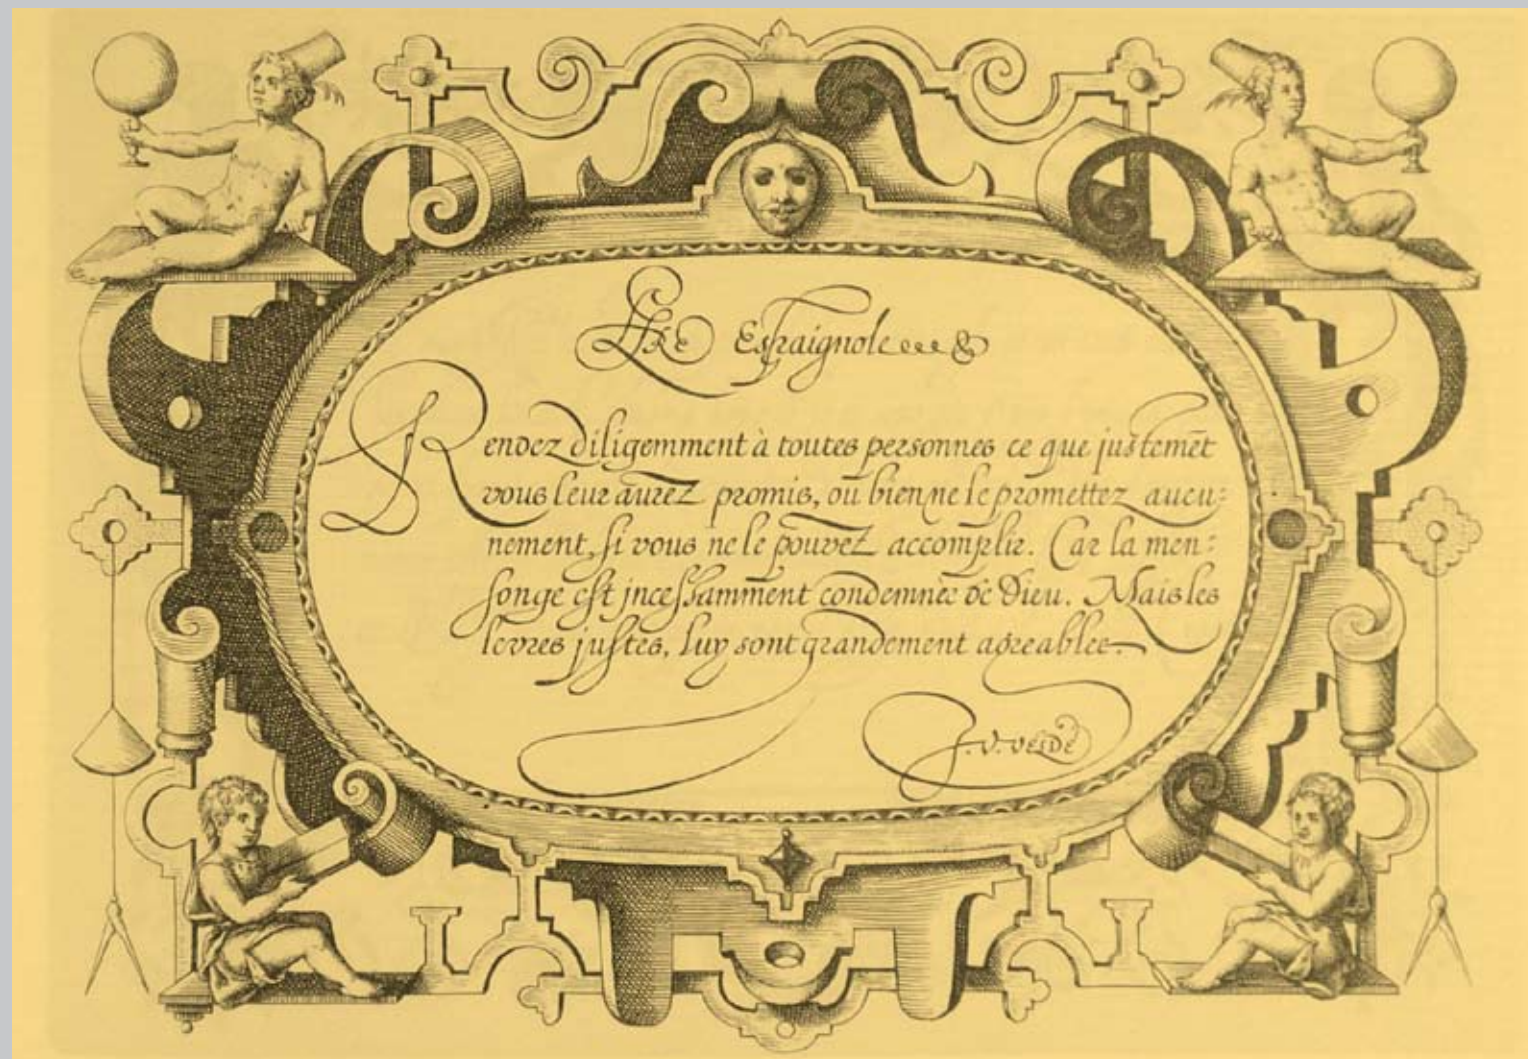 Lr̃e Espaignole &
Rendez diligemment à toutes personnes ce que justemẽt
vous leur aurez promis, ou bien ne le promettez aucu:
nement, si vous ne le pouvez accomplir. Car la men:
songe est incessamment condemnée de Dieu. Mais les
levres justes, luy sont grandement agreables.
J. V. Velde